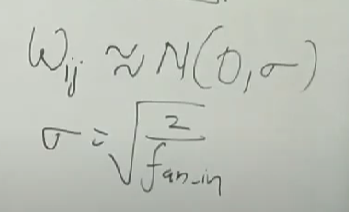 Wij ≈ N(0,σ)
σ = √(2/fan-in)